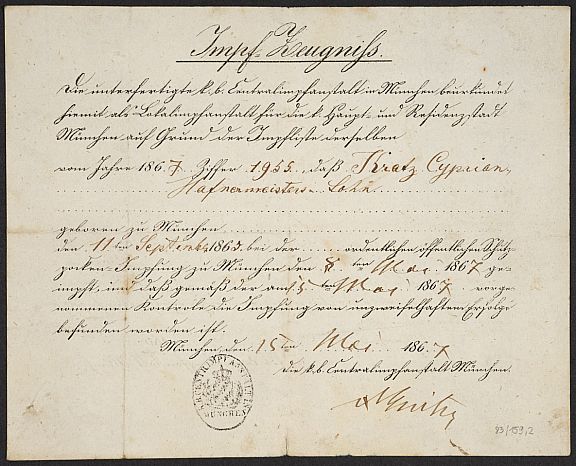 Impf-Zeugniß.
Die unterfertigte k. b. Centralimpfanstalt in München beurkundet
hiemit als Lokalimpfanstalt für die k. Haupt- und Residenzstadt
München auf Grund der Impfliste derselben
vom Jahre 1867 Ziffer 1955, daß Kratz Cyprian,
Hafnermeisters-Sohn
geboren zu München
den 11ten Septemb. 1865 bei der ordentlichen öffentlichen Schutz-
pocken-Impfung zu München den 8ten Mai 1867 ge-
impft, und daß gemäß der am 15ten Mai 1867 vorge-
nommenen Kontrole die Impfung von unzweifelhaftem Erfolge
befunden worden ist.
München, den 15ten Mai 1867
die k. b. Centralimpfanstalt München.
MÜNCHEN
93/159,2